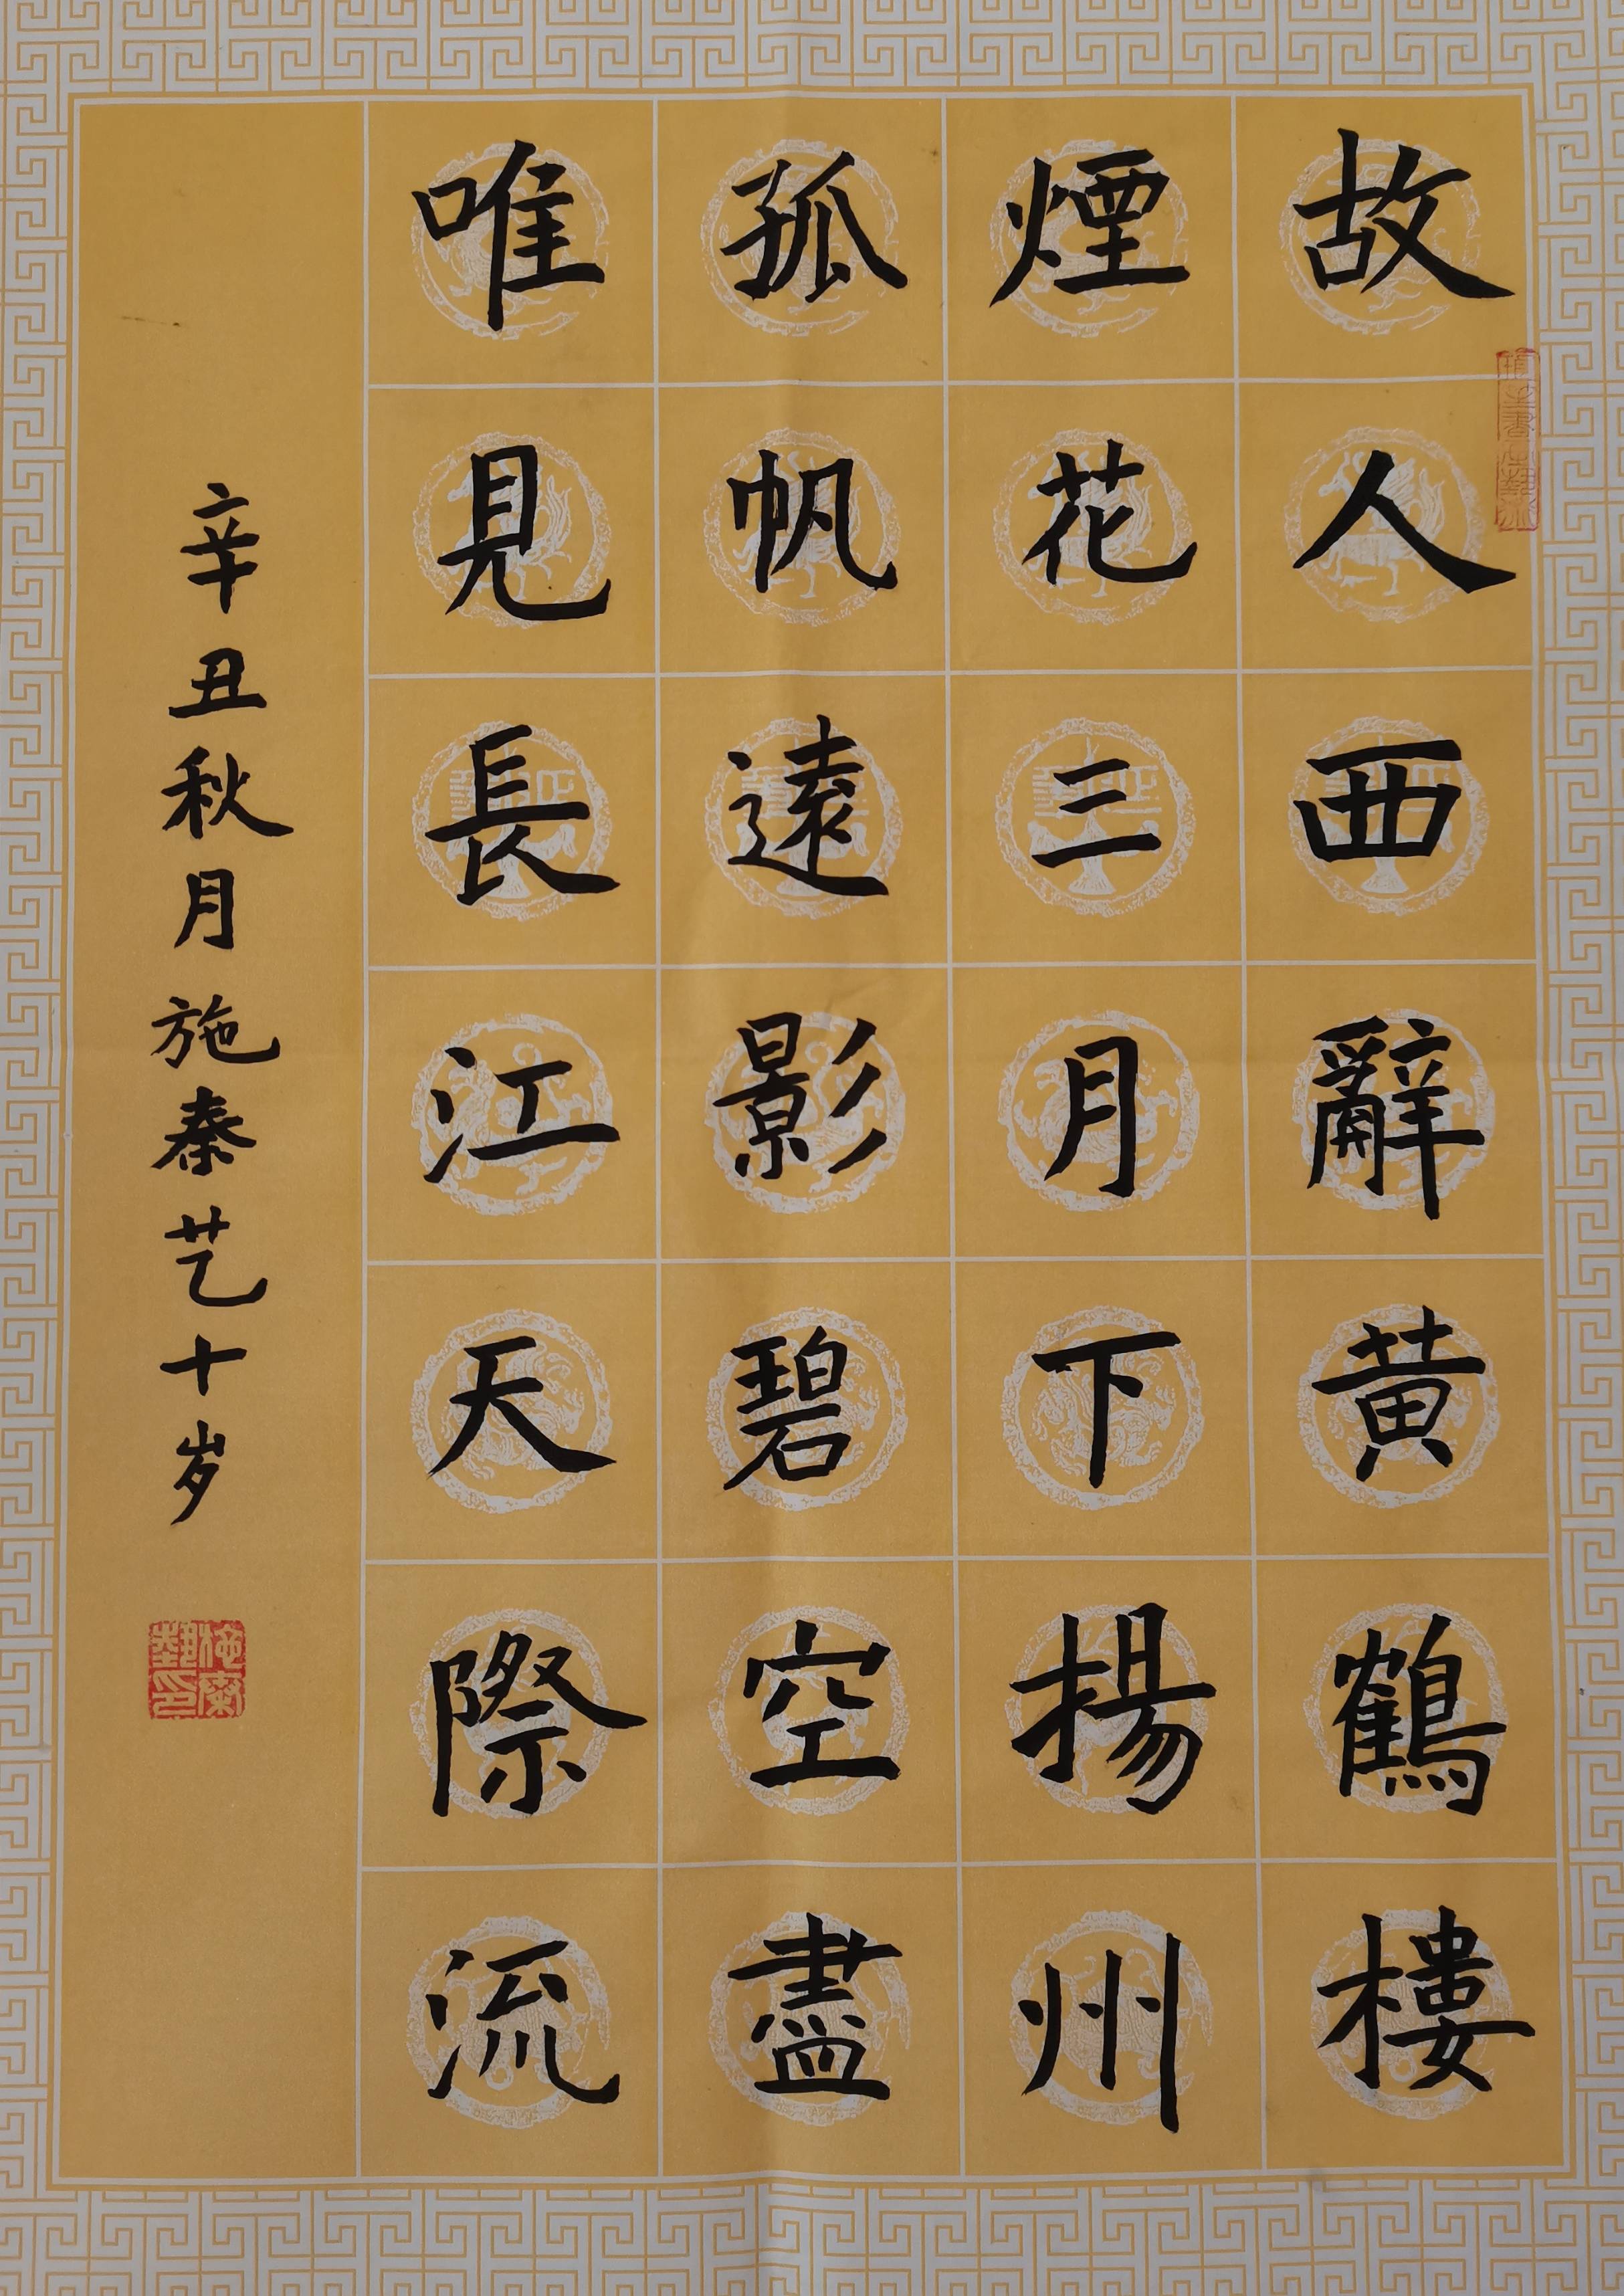 故人西辭黃鶴樓
煙花三月下揚州
孤帆遠影碧空盡
唯見長江天際流
辛丑秋月施秦艺十岁